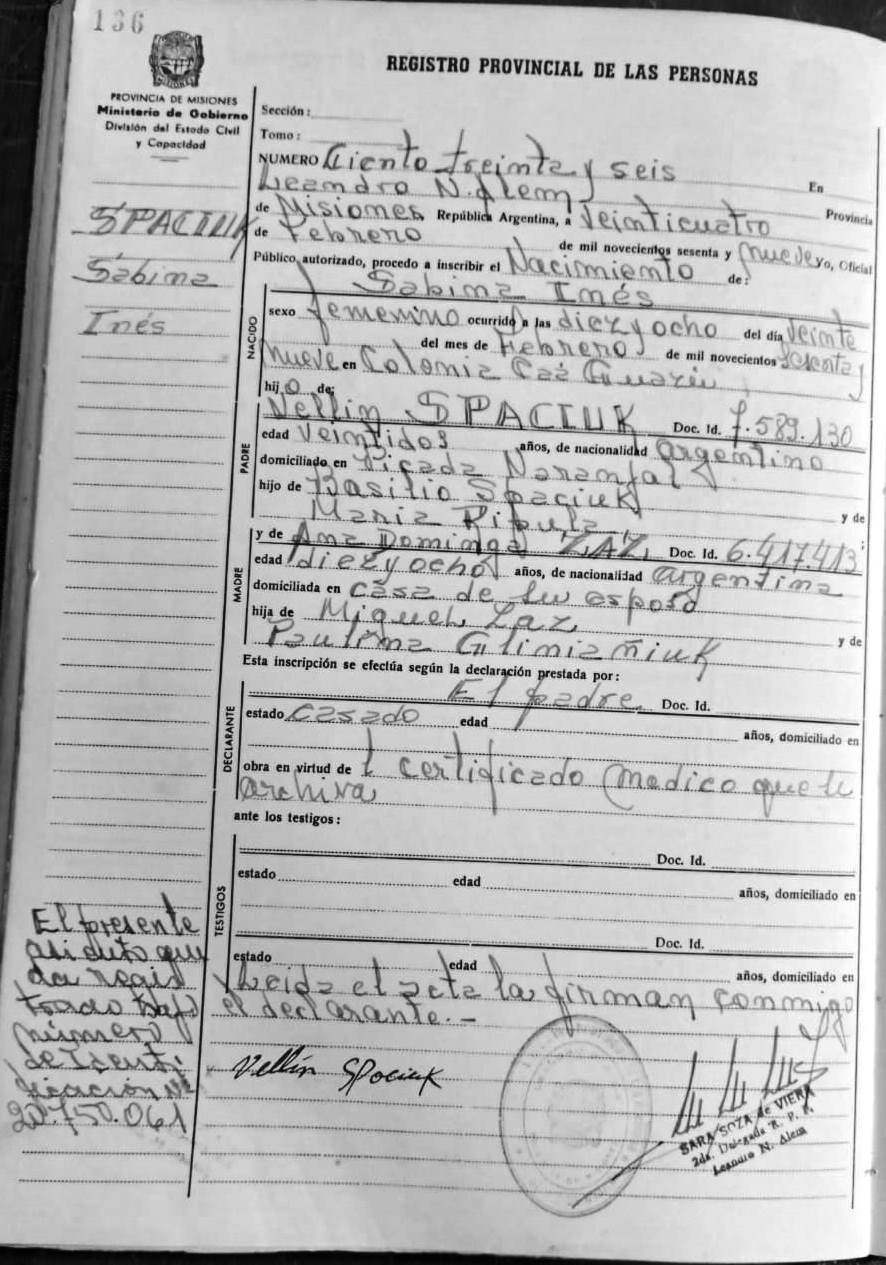 136
REGISTRO PROVINCIAL DE LAS PERSONAS
PROVINCIA DE MISIONES
Ministerio de Gobierno
División del Estado Civil
y Capacidad
SPACIUK
Sabina
Inés
Sección:
Tomo:
NUMERO Ciento treinta y seis En
Leandro N. Alem Provincia
de Misiones República Argentina, a Veinticuatro
de Febrero de mil novecientos sesenta y nueve yo, Oficial
Público autorizado, procedo a inscribir el Nacimiento de:
NACIDO
Sabina Inés
sexo femenino ocurrido a las diez y ocho del día Veinte
del mes de Febrero de mil novecientos sesenta y
nueve en Colonia Caá Guazú
hijo de:
PADRE
Vellin SPACIUK Doc. Id. 7.589.130
edad Veintidos años, de nacionalidad argentino
domiciliado en Picada Naranjal
hijo de Basilio Spaciuk y de
Maria Ripula
MADRE
y de Ana Dominga ZAZ Doc. Id. 6.417.413
edad diez y ocho años, de nacionalidad argentina
domiciliada en casa de su esposo
hija de Miguel Zaz y de
Paulina
Esta inscripción se efectúa según la declaración prestada por:
DECLARANTE
El padre Doc. Id.
estado casado edad años, domiciliado en
obra en virtud de l certificado medico que se
archiva
ante los testigos:
TESTIGOS
Doc. Id.
estado edad años, domiciliado en
Doc. Id.
estado edad años, domiciliado en
Leida el acta la firman conmigo
el declarante.-
Vellin Spaciuk
SARA SOZA de VIERA
2da. Delegada R. P. P.
Leandro N. Alem
El presente
asiento que
da regis
trado bajo
número
de Identi
ficación Nº
20.750.061